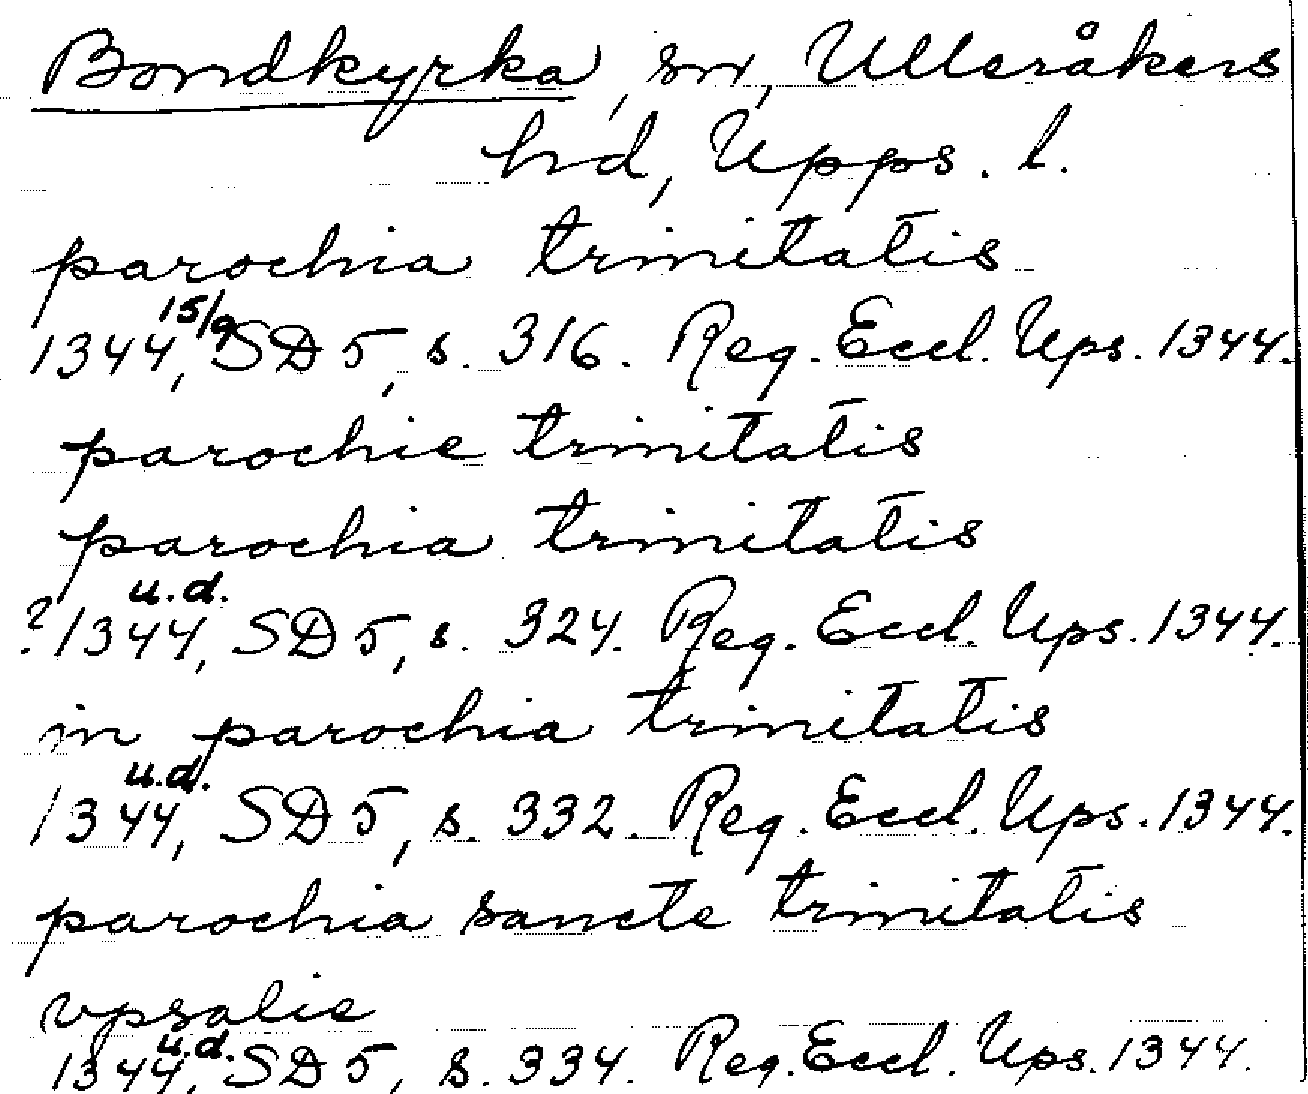 Bondkyrka, sn, Ulleråkers
hd, Upps. l.
parochia trinitatis
1344 15/9, SD 5, s. 316. Reg. Eccl. Ups. 1344.
parochie trinitatis
parochia trinitatis
?1344 u.d., SD 5, s. 324. Reg. Eccl. Ups. 1344.
in parochia trinitatis
1344 u.d., SD 5, s. 332. Reg. Eccl. Ups. 1344.
parochia sancte trinitatis
vpsalie
1344 u.d., SD 5, s. 334. Reg. Eccl. Ups. 1344.